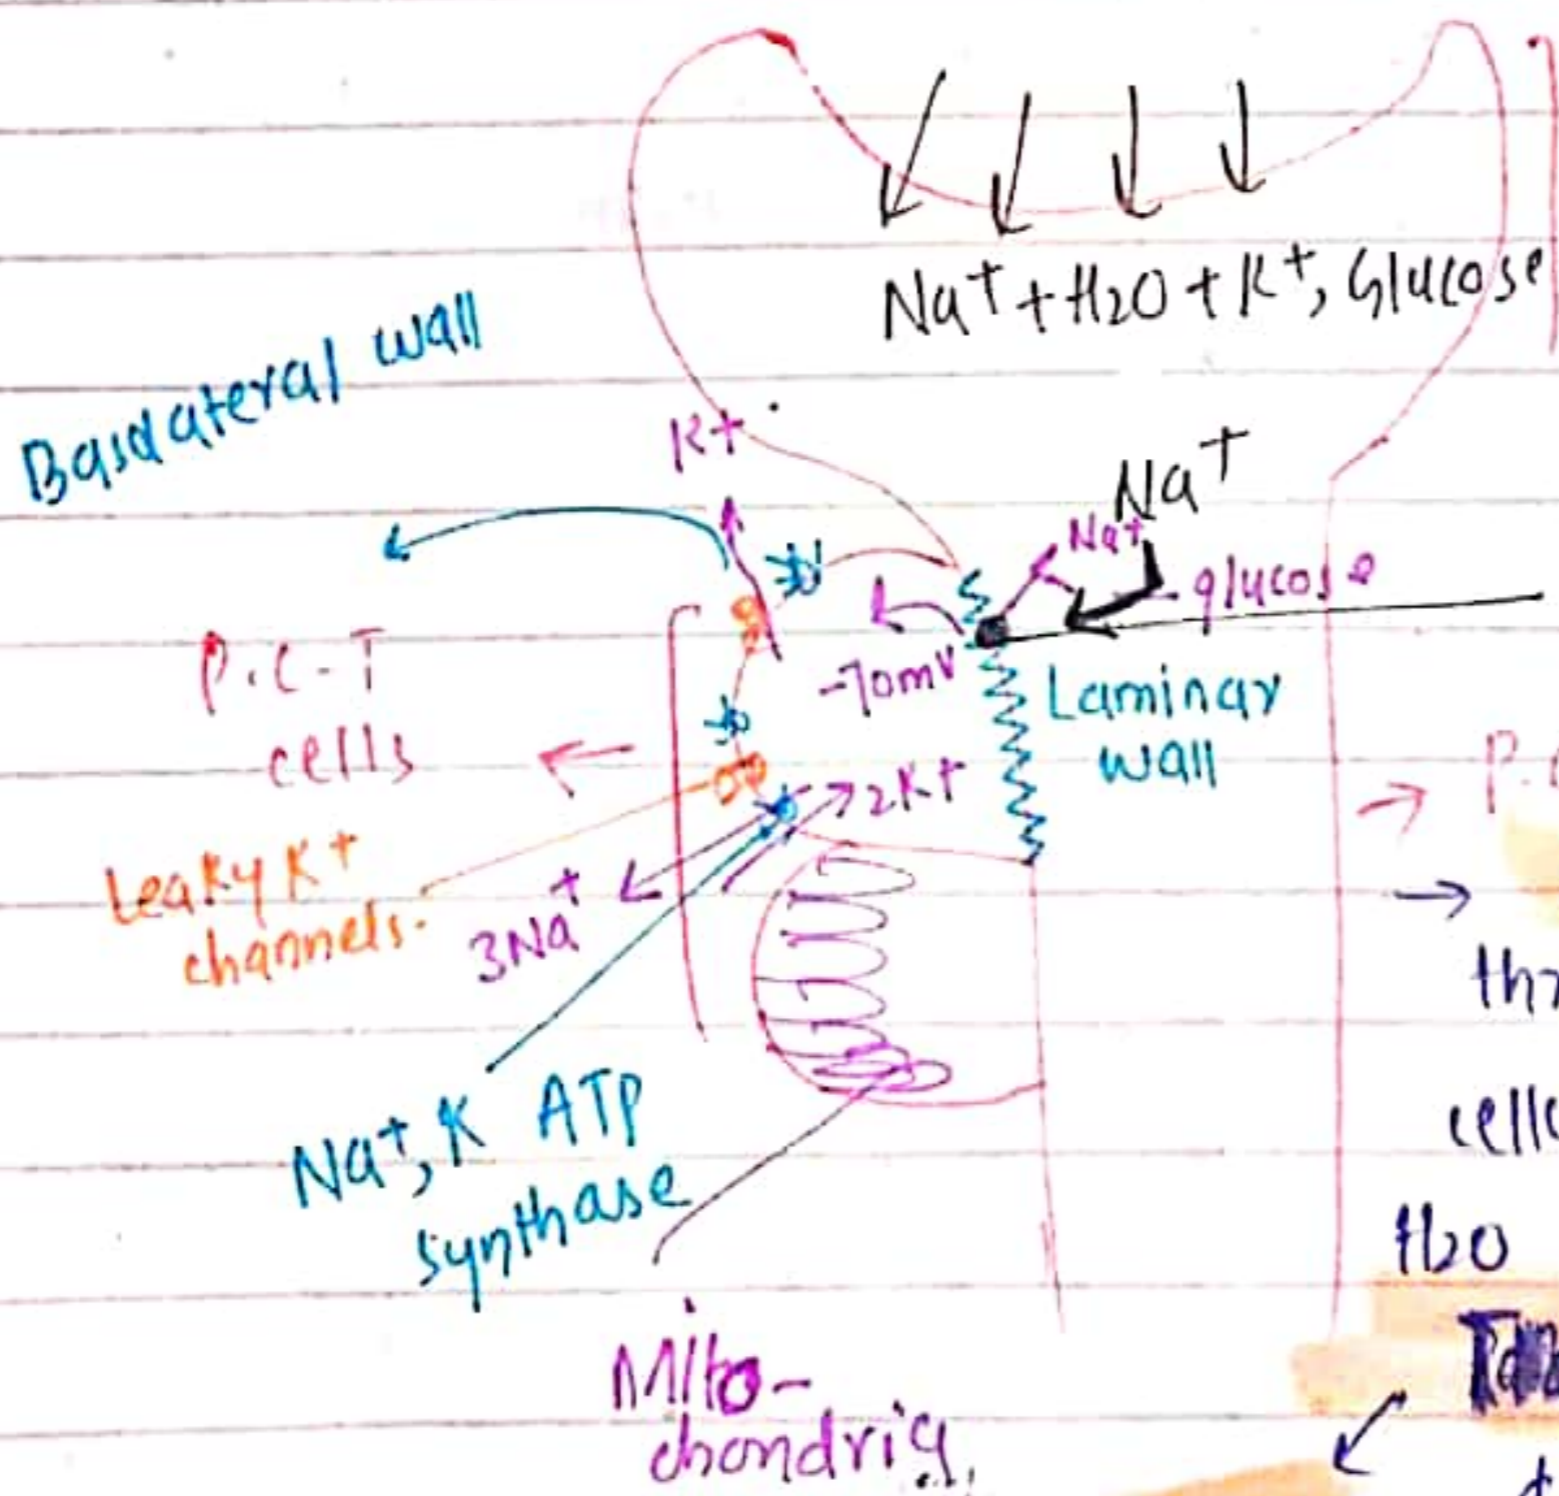 Na+ + H2O + K+, Glucose
Basolateral wall
K+
Na+
Na+
glucose
-70mV
Laminar
wall
P.C.T
cells
2K+
Leaky K+
channels.
3Na+
Na+, K ATP
synthase
Mito-
chondria
H2O